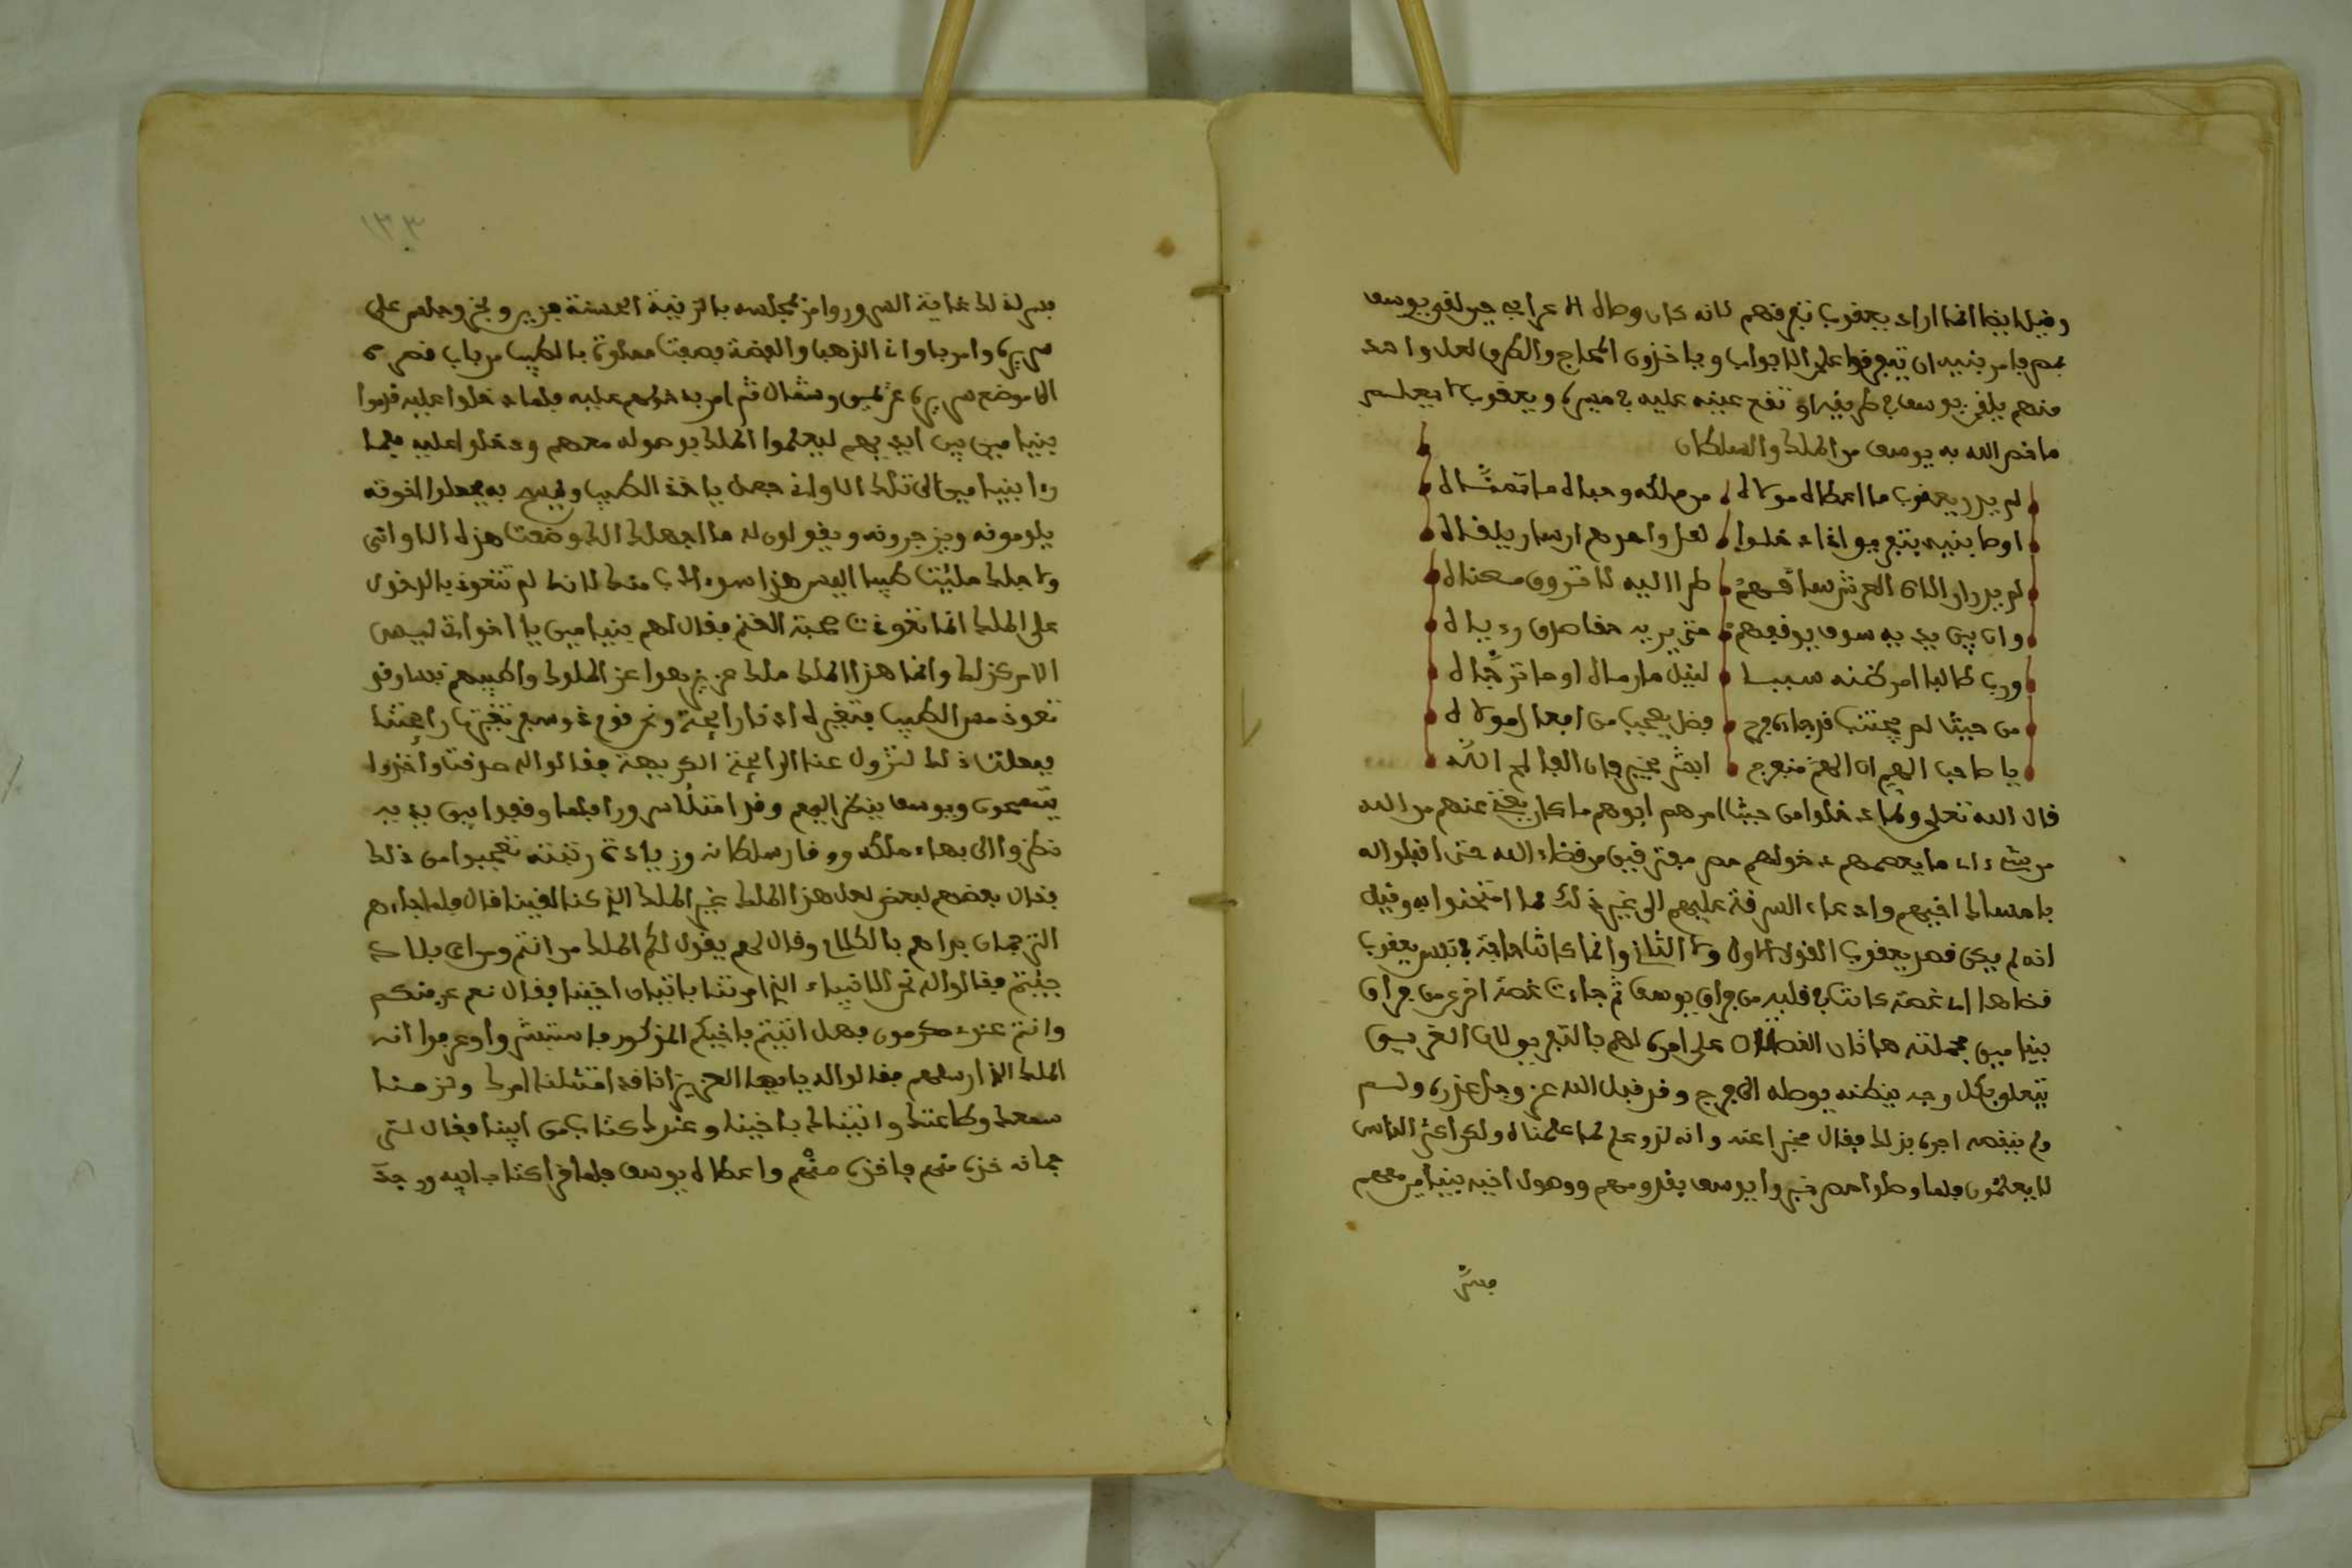 وقيل ايضا انما اراد يعقوب تفرقهم لانه كان وصاه الاعرابي حين لقي يوسف
بمصر يامر بنيه ان يتفرقوا على الابواب وياخذون الفجاج والطرق لعل واحد
منهم يلقى يوسف في طريقه او تقع عينه عليه في مسيره ويعقوب لا يعلم
ما خص الله به يوسف من الملك والسلطان
لم يدر يعقوب ما اعطاه مولاه من ملكه وحباه ما تمناه
اوصا بنيه بتفريق اذا دخلوا لعل واحدهم ان سار يلقاه
لم يدر ان الاه العرش سائقهم طرا اليه لا تروى معناه
وان بين يديه سوف يوقفهم متى يريد حقا صدق رءياه
ورب طالب امر ظنه سببا لنيل مارماه او ما ترجاه
من حيث لم يحتسب قد جاه فرج فضل يعجب من افعال مولاه
يا صاحب الهم ان الهم منفرج ابشر بخير فان الفارج الله
قال الله تعلى ولما دخلوا من حيث امرهم ابوهم ما كان يغني عنهم من الله
من شيء اي ما يعصمهم دخولهم مصر مفترقين من قضاء الله حتى اقبلوا اله
بامساك اخيهم وادعاء السرقة عليهم الى غير ذلك مما امتحنوا به وقيل
انه لم يكن قصد يعقوب القول الاول ولا الثاني وانما كانت حاجة في نفس يعقوب
قضاها اي غصة كانت في قلبه من فراق يوسف ثم جاءت غصة اخرى من فراق
بنيامين فحملته هاتان الغصتان على امره لهم بالتفريق لان الغريق
يتعلق بكل وجه يظنه يوصله الى فرج وقد قبل الله عز وجل عذره ولم
ولم ينقصه اجره بذلك فقال مخبرا عنه وانه لذو علم لما علمناه ولكن اكثر الناس
لا يعلمون فلما وصلوا مصر خبروا يوسف بقدومهم ووصول اخيه بنيامين معهم
فسر
١٣٣
فسر لذلك غاية السرور وامر بمجلسه بالزينة الحسنة فزين وبخر وجلس على
سريره وامر باواني الذهب والفضة فصفت مملوة بالطيب من باب قصره
الى موضع سريره عن يمين وشمال ثم امر بدخولهم عليه فلما دخلوا عليه قدموا
بنيامين بين ايديهم ليعلموا الملك بوصوله معهم ودخلوا عليه فلما
رءا بنيامين الى تلك الاواني جعل ياخذ الطيب ويمسح به فجعلوا اخوته
يلومونه ويزجرونه ويقولون له ما اجهلك الك وضعت هذه الاواني
ولاجلك ملئت طيبا اليس هذا سوء ادب منك لانك لم تتعود بالدخول
على الملك انما تعودت صحبة الغنم فقال لهم بنيامين يا اخوتي ليس
الامر كذلك وانما هذا الملك ملك عزيز من اعز الملوك واطيبهم نفسا وقد
تعود مس الطيب فتغيره ادنا رايحة ونحن قوم ذو سفر تغيرت رايحتنا
ففعلت ذلك لتزول عنا الرايحة الكريهة فقالوا له صدقت واخذوا
يتمسحون ويوسف ينظر اليهم وقد امتلا سرورا فلما وقفوا بين يديه
نظروا الى بهاء ملكه ووقار سلطانه وزيادة رتبته تعجبوا من ذلك
فقال بعضهم لبعض لعل هذا الملك غير الملك الذي كنا لقينا قال فلما جاءهم
الترجمان بداهم بالكلام وقال لهم يقول لكم الملك من انتم ومن اي بلاد
جئتم فقالوا له نحن الاغنياء الذي امرتنا باتيان اخينا فقال نعم عرفتكم
وانتم عندي مكرمون فهل اتيتم باخيكم المذكور فاستبشروا وعرفوا انه
الملك الذي ارسلهم فقالوا له يايها العزيز انا قد امتثلنا امرك ولزمنا
سمعك وطاعتك واتيناك باخينا وعندك كتاب من ابينا فقال لتر
جمانه خذه منهم فاخذه منهم واعطاه ليوسف فلما قرا كتاب ابيه وجد